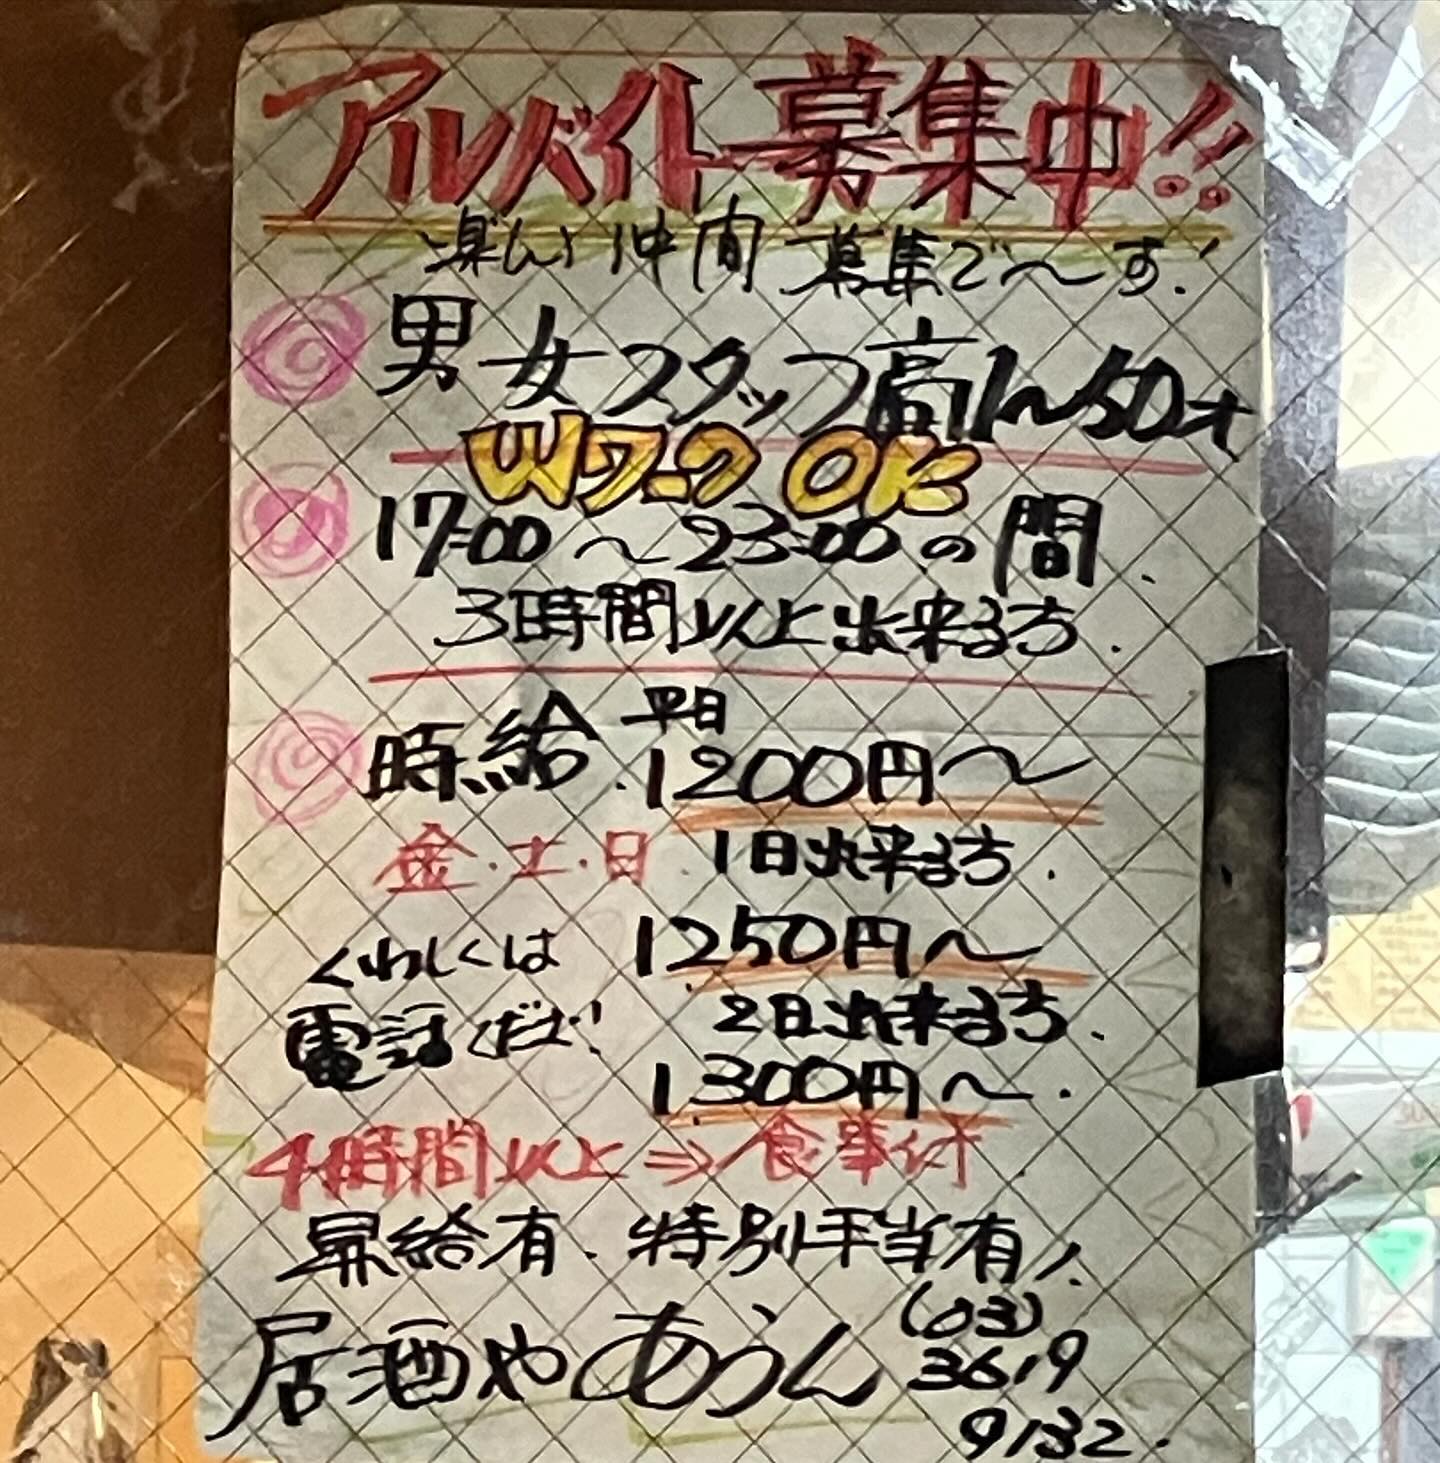 アルバイト募集中!!
楽しい仲間募集で〜す!
男女スタッフ高1〜50才
WワークOK
17:00〜23:00の間.
3時間以上出来る方.
時給 平日 1200円〜
金・土・日 1日出来る方.
くわしくは 1250円〜
電話くださ! 2日出来る方.
1300円〜.
4時間以上⇒食事付
昇給有. 特別手当有!
居酒やあうん (03)
3619
9132.